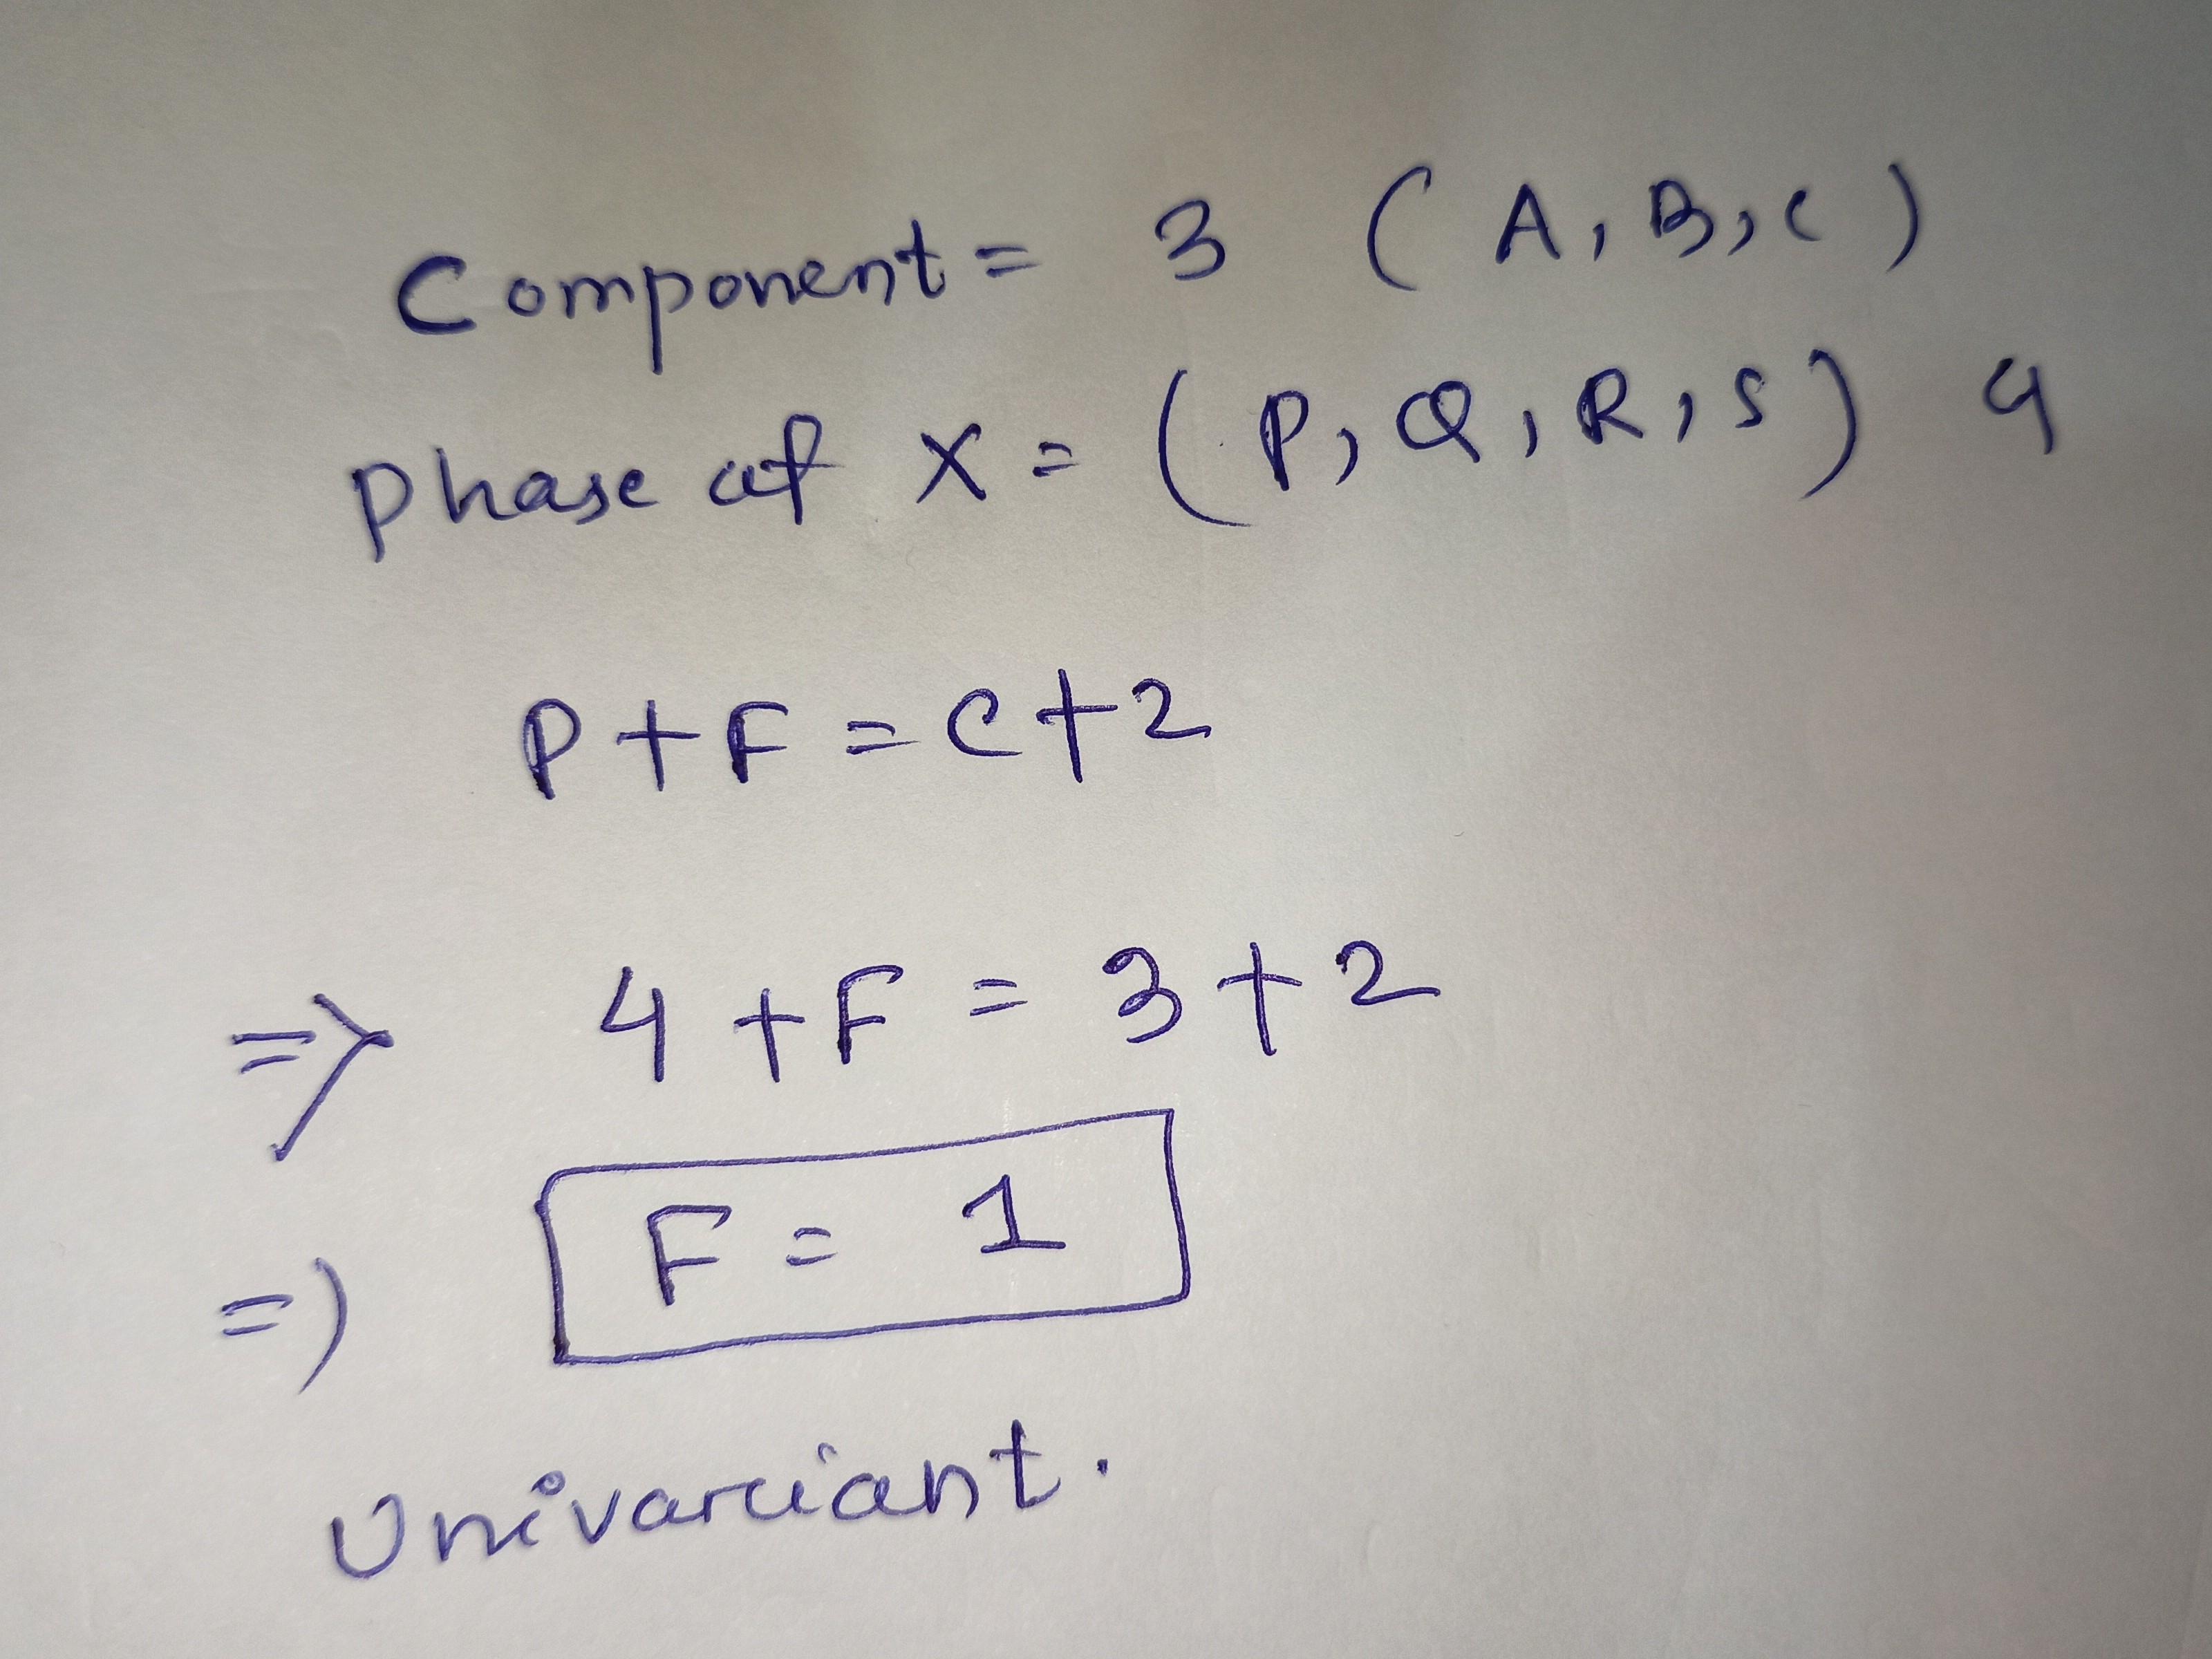 Component = 3 ( A, B, C )
Phase at X = ( P, Q, R, S ) 4
P + F = C + 2
=> 4 + F = 3 + 2
=) F = 1
Univariant.